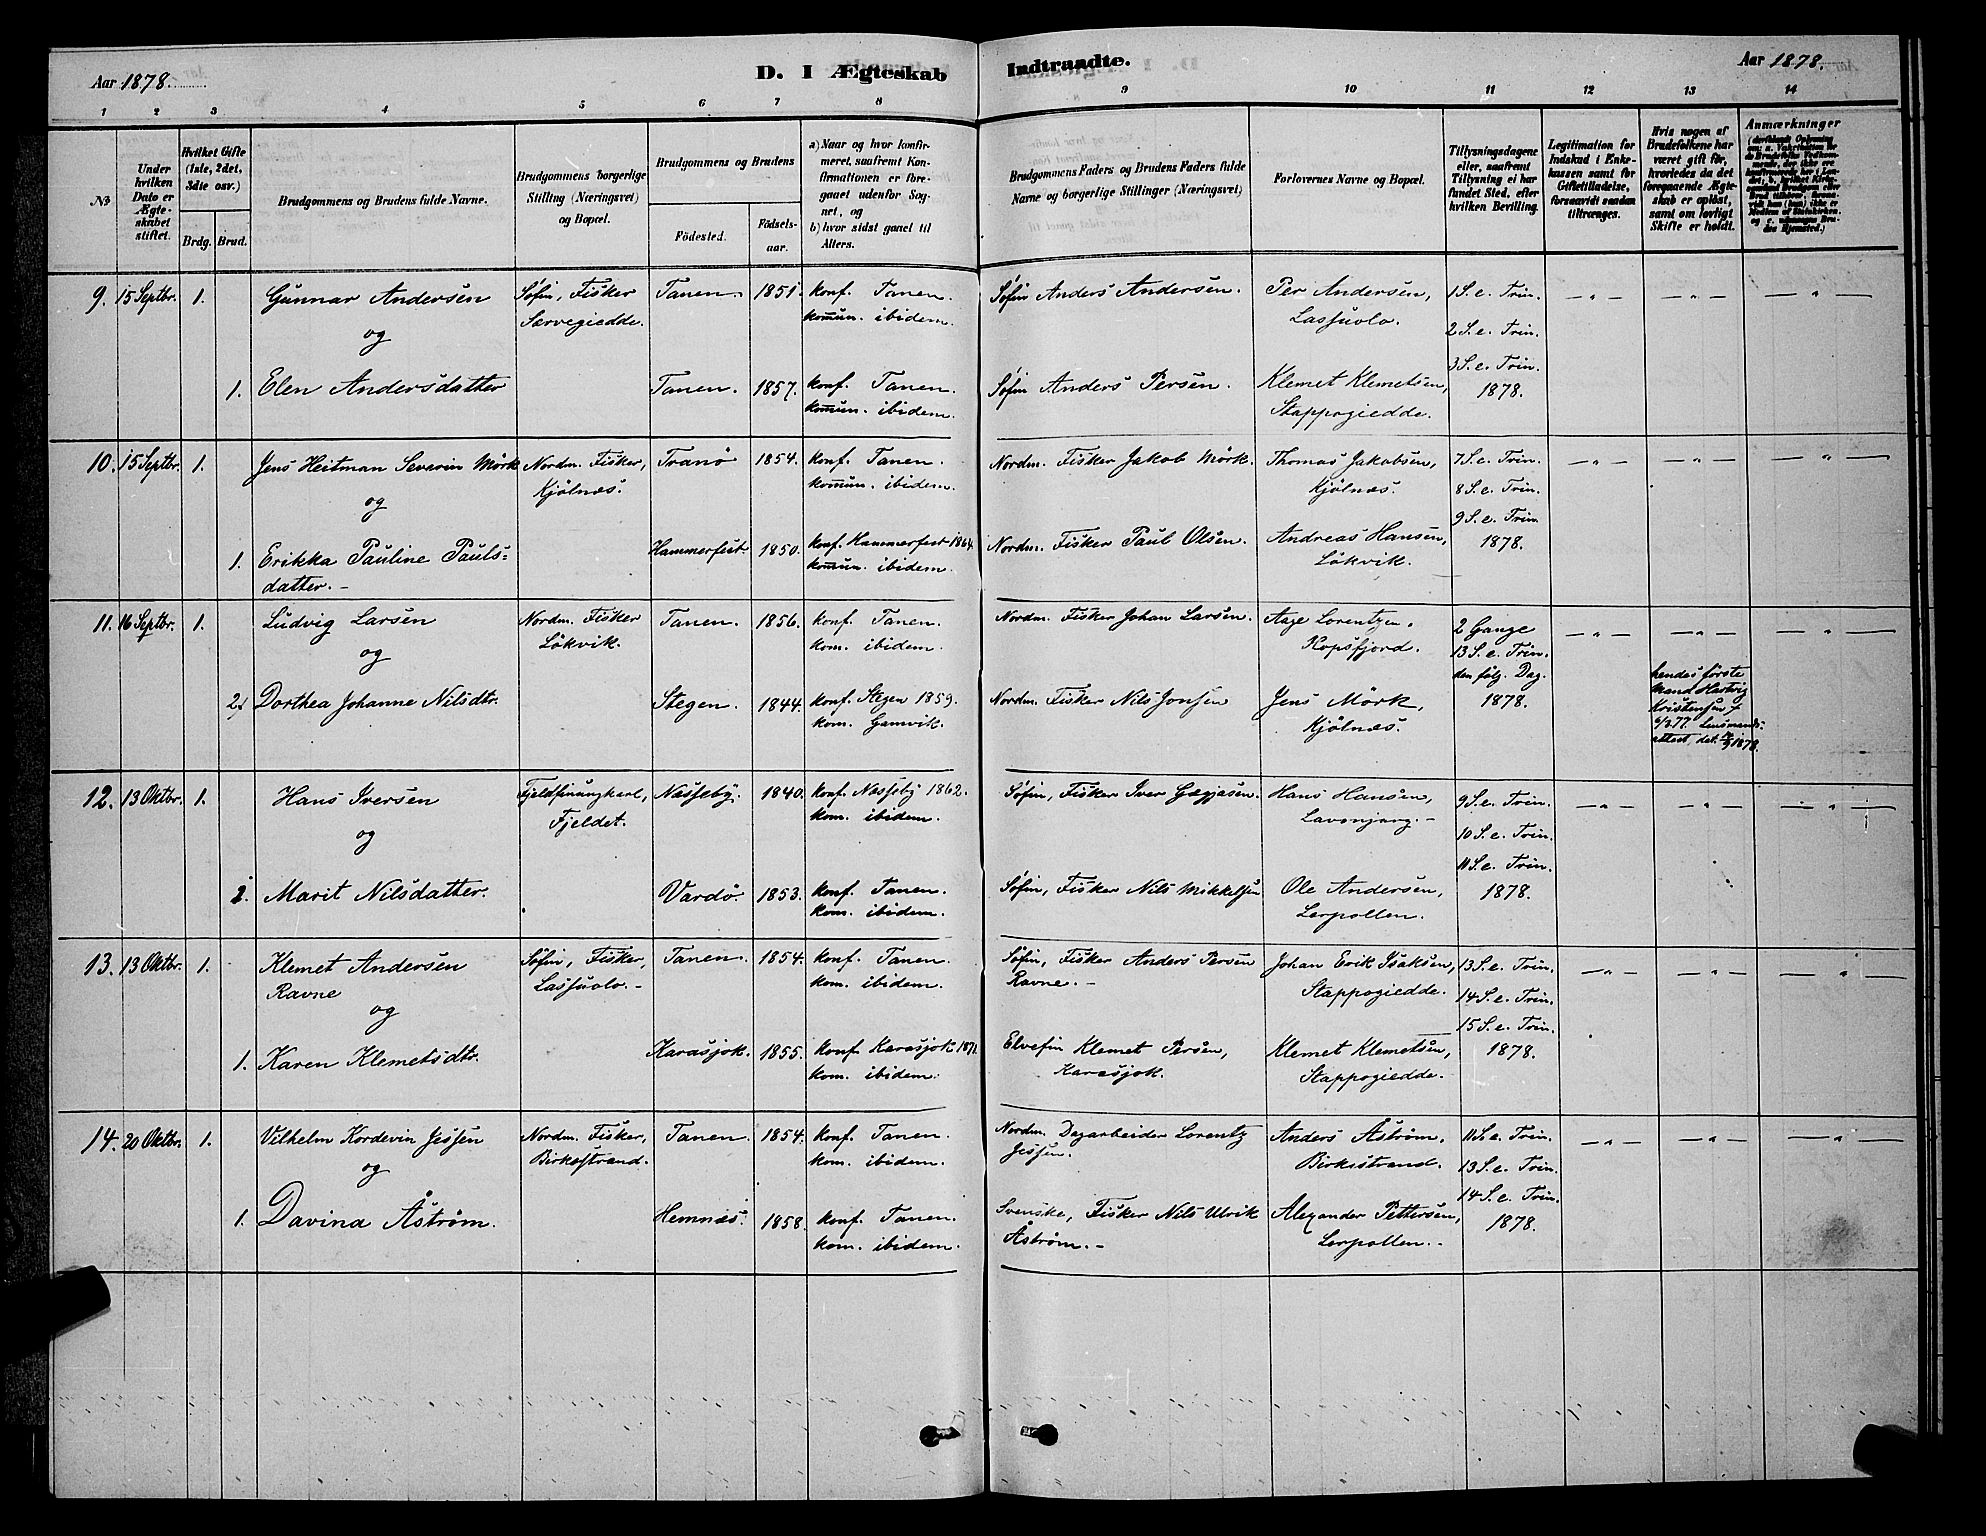 Aar 1878.
D. I Ægteskab
Indtraadte.
Aar 1878.
1 2 3 4 5 6 7 8 9 10 11 12 13 14
No
Under hvilken Dato er Ægteskabet stiftet.
Hvilket Gifte (1ste, 2det, 3die osv.)
Brdg. Brud.
Brudgommens og Brudens fulde Navne.
Brudgommens borgerlige Stilling (Næringsvei) og Bopæl.
Brudgommens og Brudens
Födested.
Födsels-aar.
a) Naar og hvor konfirmeret, saafremt Konfirmationen er foregaaet udenfor Sognet, og
b) hvor sidst gaaet til Alters.
Brudgommens Faders og Brudens Faders fulde Navne og borgerlige Stillinger (Næringsvei)
Forlovernes Navne og Bopæl.
Tillysningsdagene eller, saafremt Tillysning ei har fundet Sted, efter hvilken Bevilling.
Legitimation for Indskud i Enkekassen samt for Giftetilladelse, forsaavidt saadan tiltrænges.
Hvis nogen af Brudefolkene har været gift för, hvorledes da det foregaaende Ægteskab er oplöst, samt om lovligt Skifte er holdt.
Anmærkninger
9. 15 Septbr. 1. Gunnar Andersen
Söfin, Fisker Tanen. 1851. konf. Tanen.
Særvegiedde. komun. ibidem.
Söfin Anders Andersen. Per Andersen, 1 S. e. Trin. — " — — " — — " —
Lassuolo.
og
2 S. e. Trin.
3 S. e. Trin.
1. Elen Andersdatter Tanen. 1857. konf. Tanen.
komun. ibidem.
Söfin Anders Persen. Klemet Klemetsen, 1878.
Stappogiedde.
10. 15 Septbr. 1. Jens Heitman Severin Mörk Nordm. Fisker, Tranö 1854. konf. Tanen.
Kjölnæs. komun. ibidem.
Nordm. Fisker Jakob Mörk. Thomas Jakobsen, 7 S. e. Trin. — " — — " — — " —
Kjölnæs. 8 S. e. Trin.
og
9 S. e. Trin.
1. Erikka Pauline Pauls=
datter. —
Hammerfest. 1850. konf. Hammerfest 1864.
komun. ibidem.
Nordm. Fisker Paul Olsen. Andreas Hansen, 1878.
Lökvik.
11. 16 Septbr. 1. Ludvig Larsen Nordm. Fisker Tanen. 1856. konf. Tanen.
Lökvik. kom. ibidem.
Nordm. Fisker Johan Larsen. Aage Lorentzen, 2 Gange — " — — " — — " —
Kopsfjord. 13 S. e. Trin.
og
den følg. Dag.
2. Dorthea Johanne Nilsdtr. Stegen. 1844. konf. Stegen 1859.
kom. Gamvik.
Nordm. Fisker Nils Jonsen Jens Mörk, 1878.
Kjölnæs.
hendes förste
Mand Hartvig
Kristensen †
6/3 77. Lensmands-
attest, dat. 1878.
12. 13 Oktbr. 1. Hans Iversen Fjeldfinungkarl, Næsseby. 1840. konf. Næsseby 1862.
Fjeldet. kom. ibidem.
Söfin, Fisker Iver Gægjasen. Hans Hansen, 9 S. e. Trin. — " — — " — — " —
Lavonjarg. —
og
10 S. e. Trin.
11 S. e. Trin.
1. Marit Nilsdatter. Vardö. 1853. konf. Tanen.
kom. ibidem.
Söfin, Fisker Nils Mikkelsen Ole Andersen, 1878.
Lerpollen.
13. 13 Oktbr. 1. Klemet Andersen
Ravne
Söfin, Fisker, Tanen. 1854. konf. Tanen.
Lassuolo. — kom. ibidem.
Söfin, Fisker Anders Persen
Ravne. —
Johan Erik Isaksen, 13 S. e. Trin. — " — — " — — " —
Stappogiedde. 14 S. e. Trin.
og
15 S. e. Trin.
1. Karen Klemetsdtr. Karasjok. 1855. konf. Karasjok 1871.
kom. ibidem.
Elvefin Klemet Persen,
Karasjok.
Klemet Klemetsen, 1878.
Stappogiedde.
14. 20 Oktbr. 1. Vilhelm Kordevin Jessen Nordm. Fisker, Tanen. 1854. konf. Tanen.
Birkestrand. kom. ibidem.
Nordm. Dagarbeider Lorentz
Jessen.
Anders Åström, 11 S. e. Trin. — " — — " — — " —
Birkestrand. 13 S. e. Trin.
og
14 S. e. Trin.
1. Davina Åström. Hemnæs. 1858. konf. Tanen.
kom. ibidem.
Svenske, Fisker Nils Ulrik
Åström. —
Alexander Pettersen, 1878.
Lerpollen. —